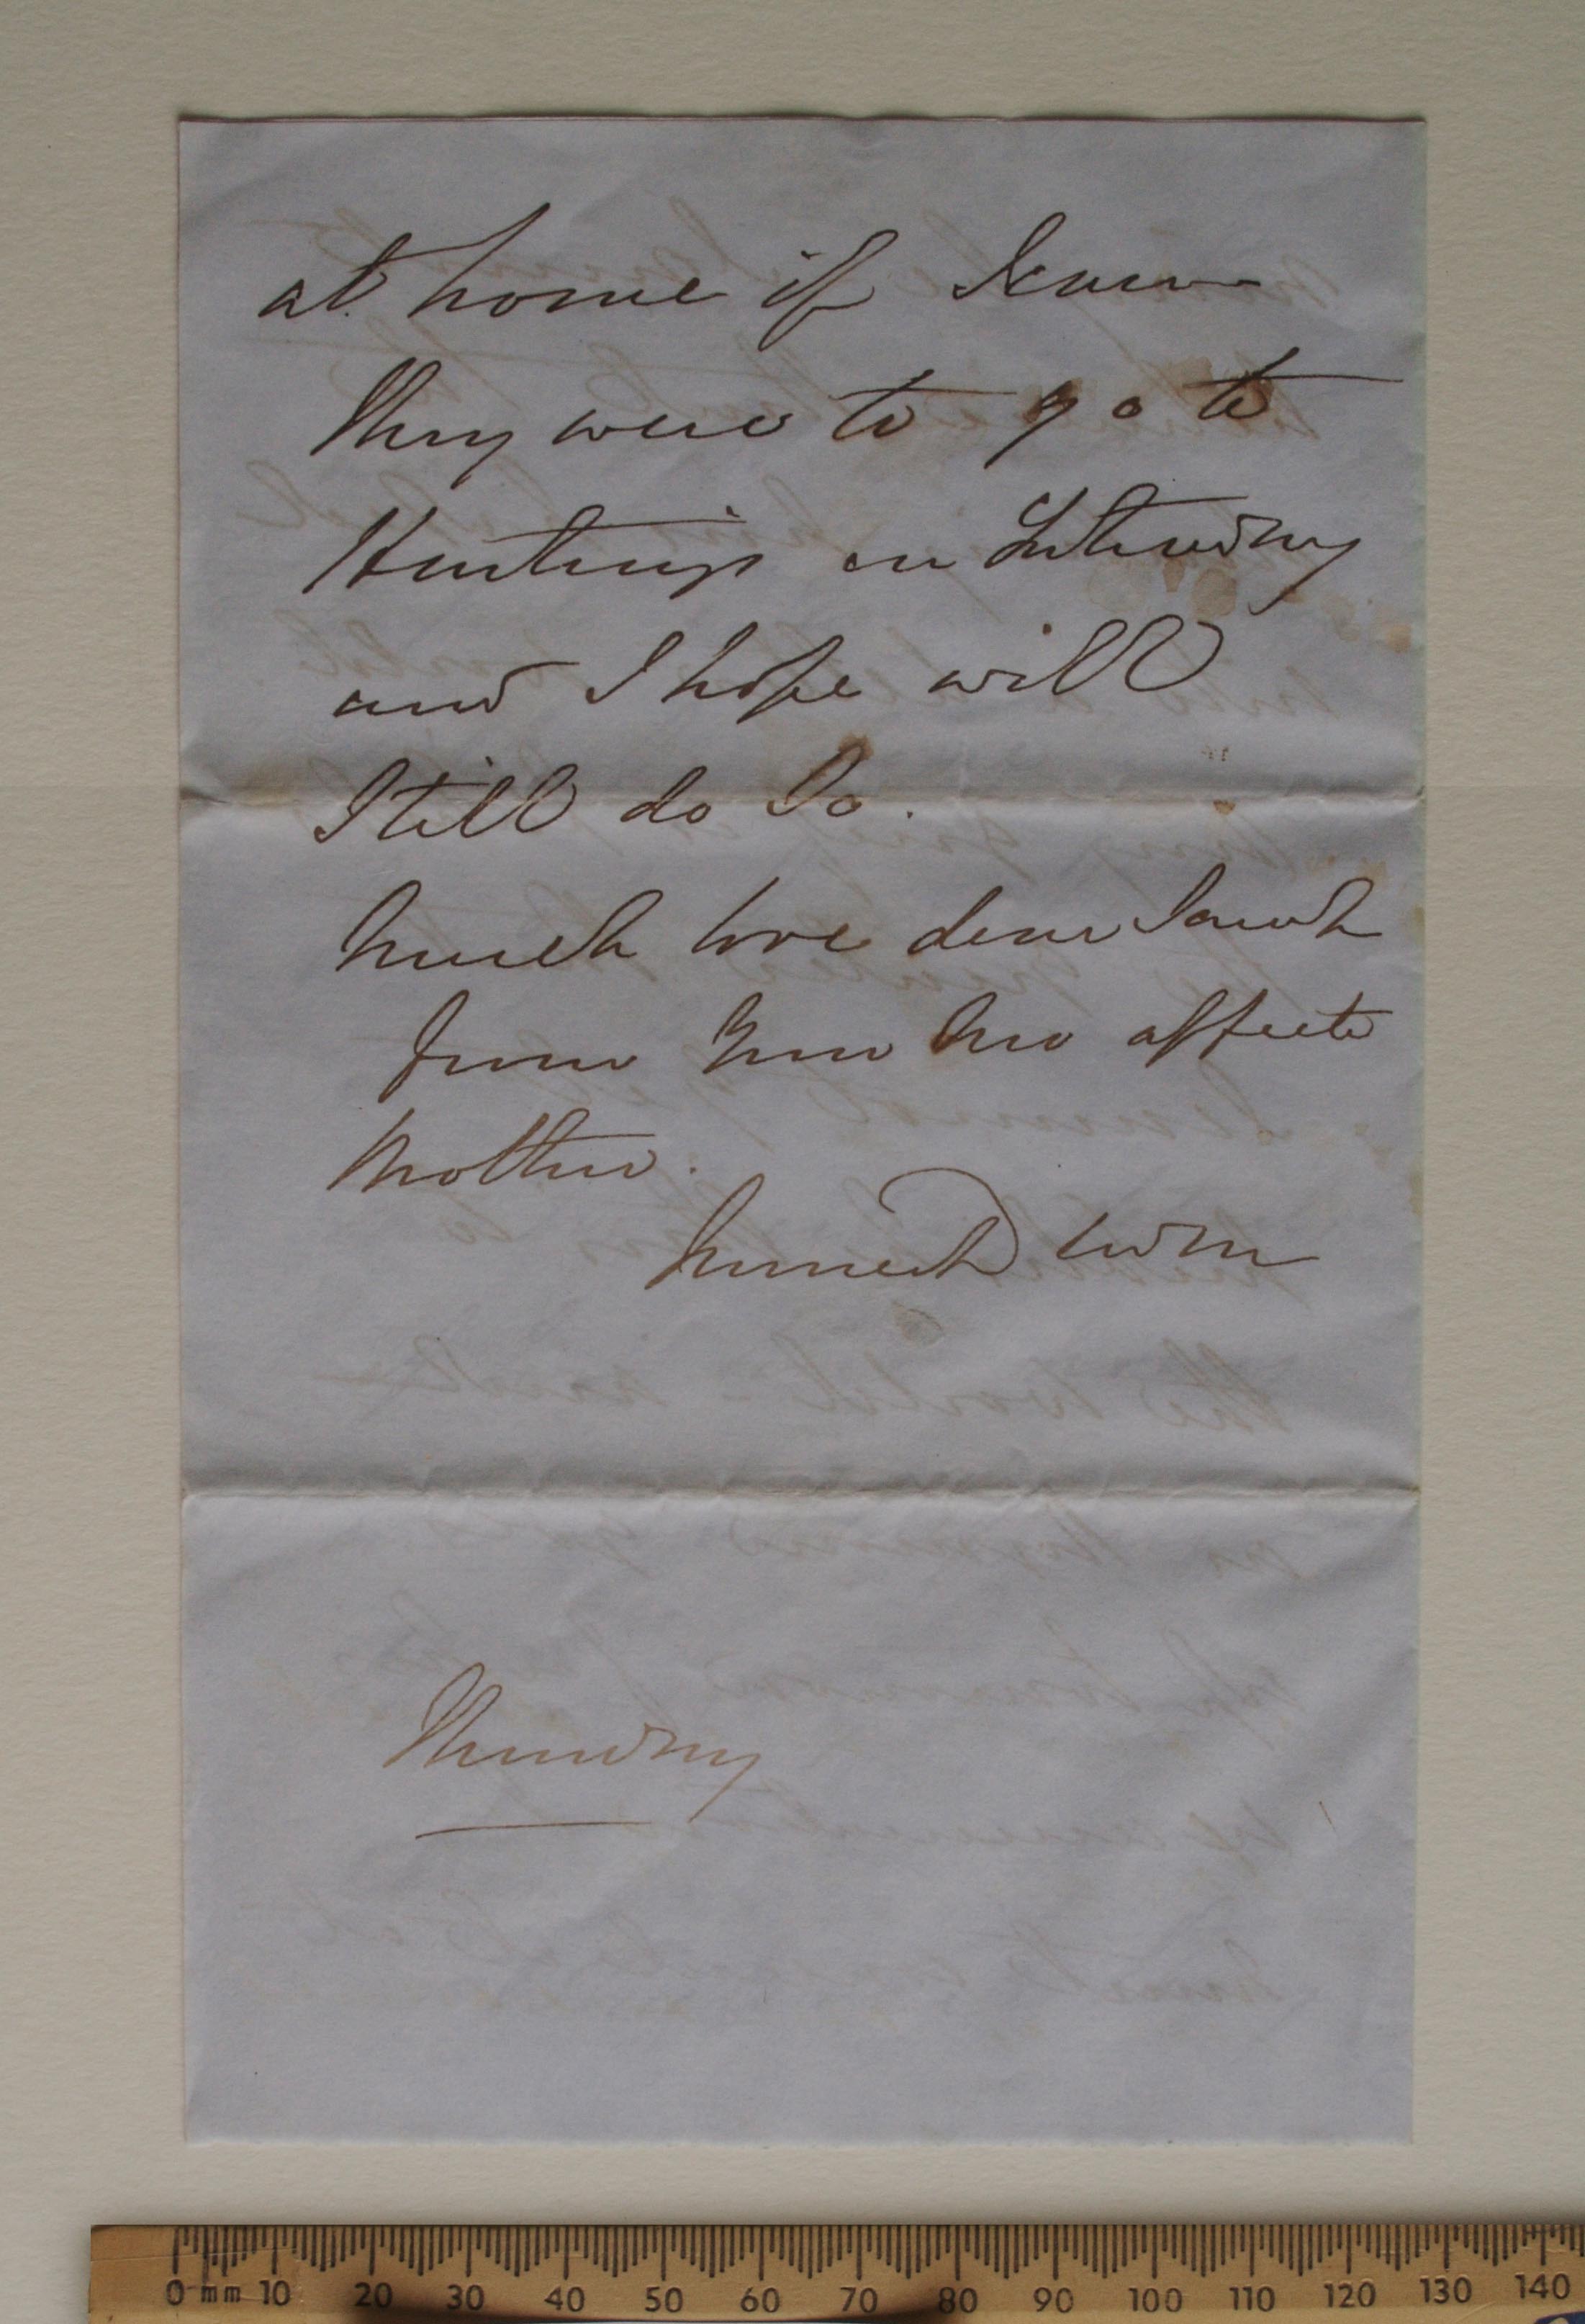 at home if I can
They were to go to
Hastings on Saturday
and I hope will
Still do So.
Much love dear Sarah
from your affecte
Mother.
Thursday
0 mm 10 20 30 40 50 60 70 80 90 100 110 120 130 140